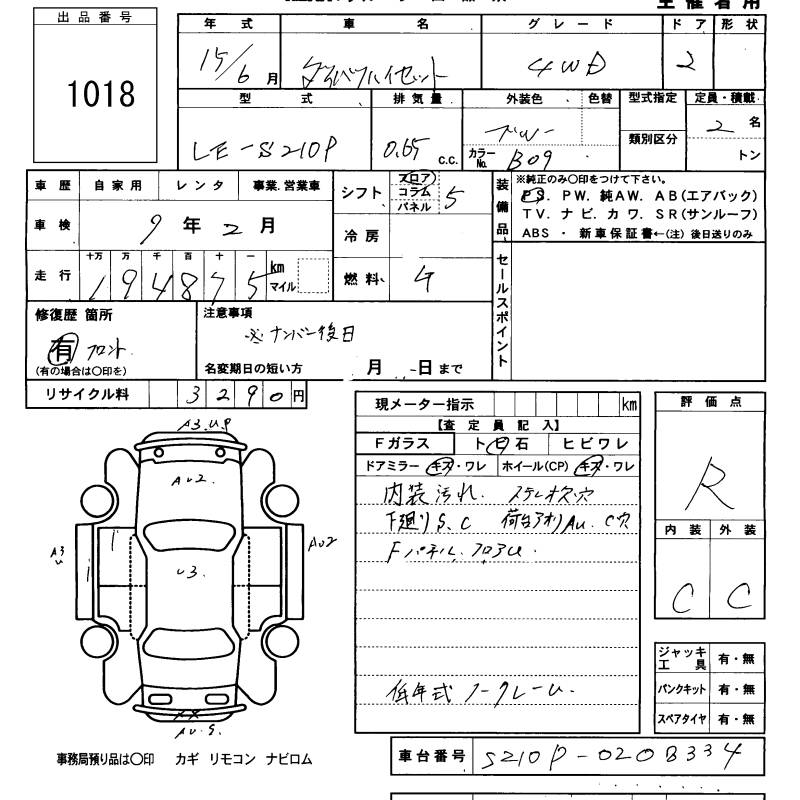 主催者用
出品番号
1018
年式 車名 グレード ドア 形状
15/6月 ダイハツハイゼット 4WD 2
型式 排気量 外装色 色替 型式指定 定員・積載
LE-S210P 0.65 c.c. ブルー 2名
カラーNo. B09 類別区分 トン
車歴 自家用 レンタ 事業、営業車
シフト フロア コラム パネル 5
装備品 ※純正のみ〇印をつけて下さい。
PS. PW. 純AW. AB(エアバック)
TV. ナビ. カワ. SR(サンルーフ)
ABS ・ 新車保証書←(注) 後日送りのみ
車検 9年2月
冷房
走行 十万 万 千 百 十 一
194875 km マイル
燃料 ガ
セールスポイント
修復歴 箇所
有 フロント
(有の場合は〇印を)
注意事項
※ナンバー後日
名変期日の短い方 月 日まで
リサイクル料 3290円
現メーター指示 km
【査定員記入】
Fガラス ト日石 ヒビワレ
ドアミラー キズ・ワレ ホイール(CP) キズ・ワレ
内装汚れ. ステレオ欠穴
下廻りS.C 荷台アオリAU. C穴
Fパネル.フロアU.
低年式 ノークレーム.
評価点
R
内装 外装
C C
ジャッキ工具 有・無
パンクキット 有・無
スペアタイヤ 有・無
A3.U.P
AU2.
A3
U
U3.
AU2
AU.S.
事務局預り品は〇印 カギ リモコン ナビロム
車台番号 S210P-0208334